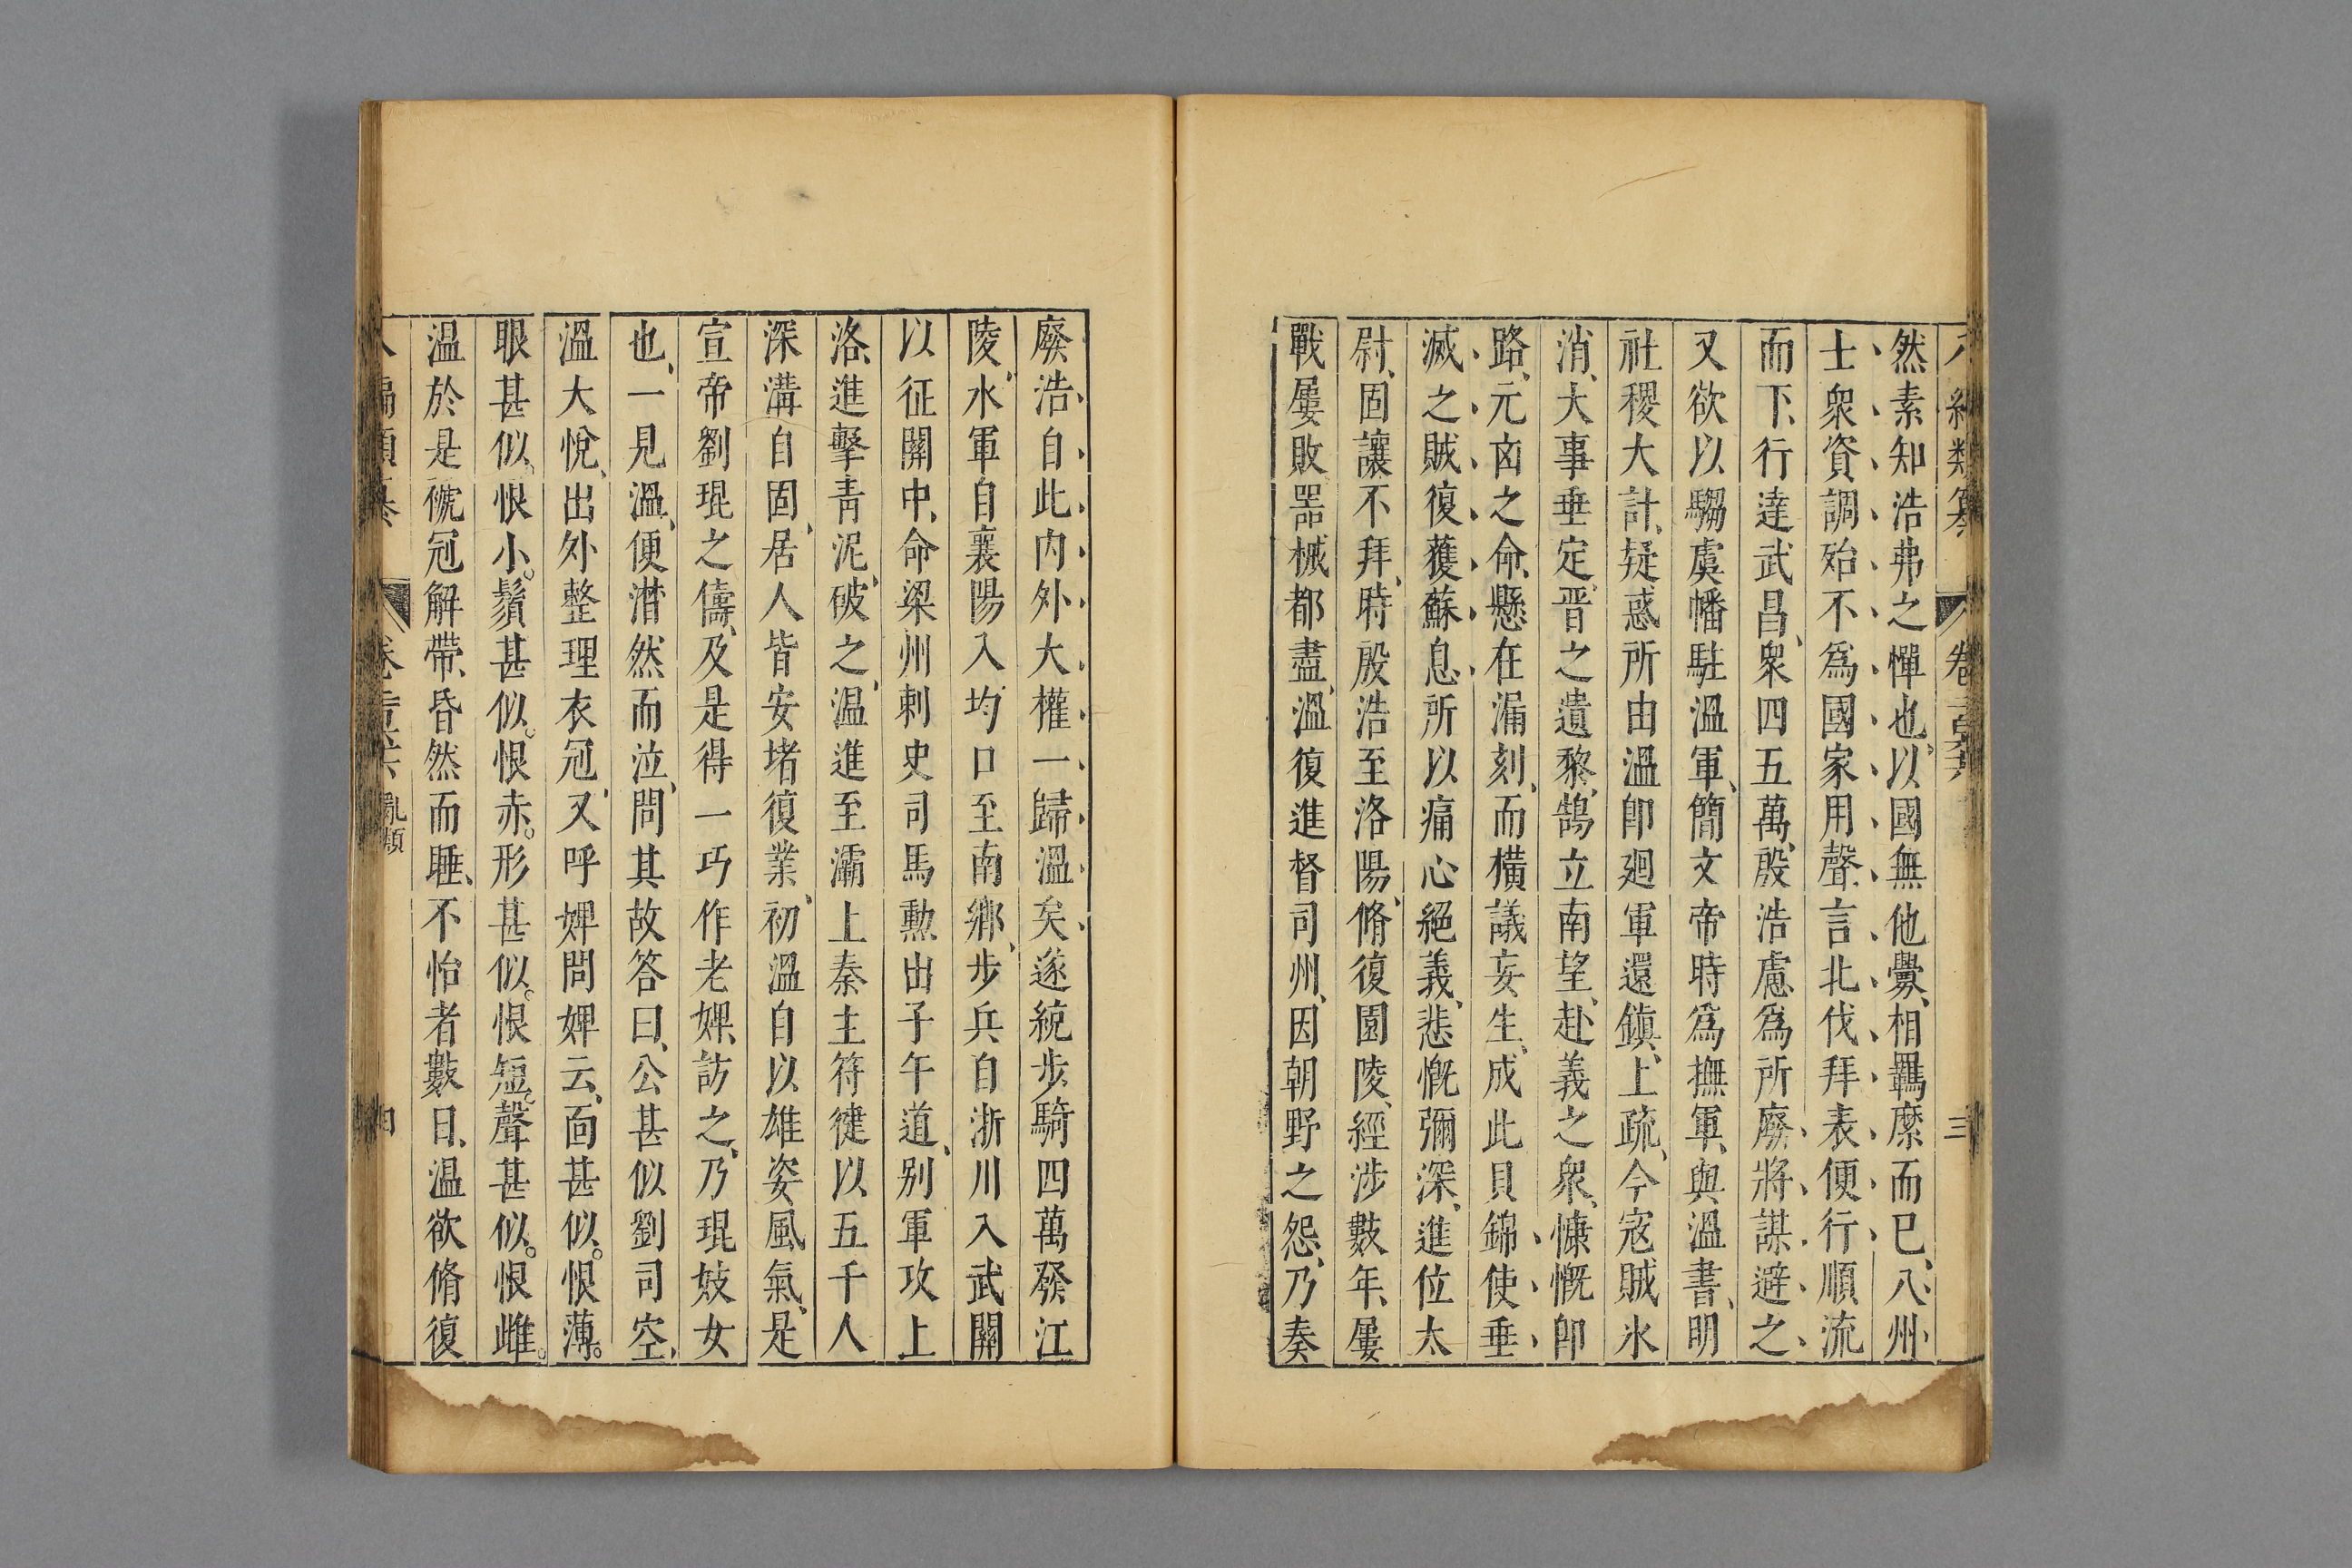 然素知浩弗之憚也以國無他釁相羈縻而已八州
士衆資調殆不爲國家用聲言北伐拜表便行順流
而下行達武昌衆四五萬殷浩慮爲所廢將謀避之
又欲以騶虞幡駐溫軍簡文帝時爲撫軍與溫書明
社稷大計疑惑所由溫卽廻軍還鎮上疏今寇賊氷
消大事垂定晋之遺黎鵠立南望赴義之衆慷慨卽
路元凶之命懸在漏刻而橫議妄生成此貝錦使垂
滅之賊復獲蘇息所以痛心絕義悲慨彌深進位太
尉固讓不拜時殷浩至洛陽脩復園陵經涉數年屢
戰屢敗噐械都盡溫復進督司州因朝野之怨乃奏
廢浩自此內外大權一歸溫矣遂統步騎四萬發江
陵水軍自襄陽入均口至南鄉步兵自淅川入武關
以征關中命梁州刺史司馬勲出子午道别軍攻上
洛進擊青泥破之温進至灞上秦主符健以五千人
深溝自固居人皆安堵復業初溫自以雄姿風氣是
宣帝劉琨之儔及是得一巧作老婢訪之乃琨妓女
也一見溫便潸然而泣問其故答曰公甚似劉司空
溫大悅出外整理衣冠又呼婢問婢云面甚似恨薄
眼甚似恨小鬚甚似恨赤形甚似恨短聲甚似恨雌
温於是褫冠解帶昏然而睡不怡者數日温欲脩復
類纂 亂類